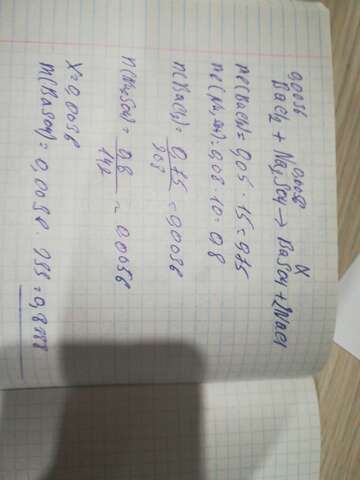 0,0036 0,0056 X
BaCl₂ + Na₂SO₄ → BaSO₄ + 2NaCl
m(BaCl₂) = 0,05 · 15 = 0,75
m(Na₂SO₄) = 0,08 · 10 = 0,8
n(BaCl₂) = 0,75 / 208 = 0,0036
n(Na₂SO₄) = 0,8 / 142 = 0,0056
X = 0,0036
m(BaSO₄) = 0,0036 · 233 = 0,8388